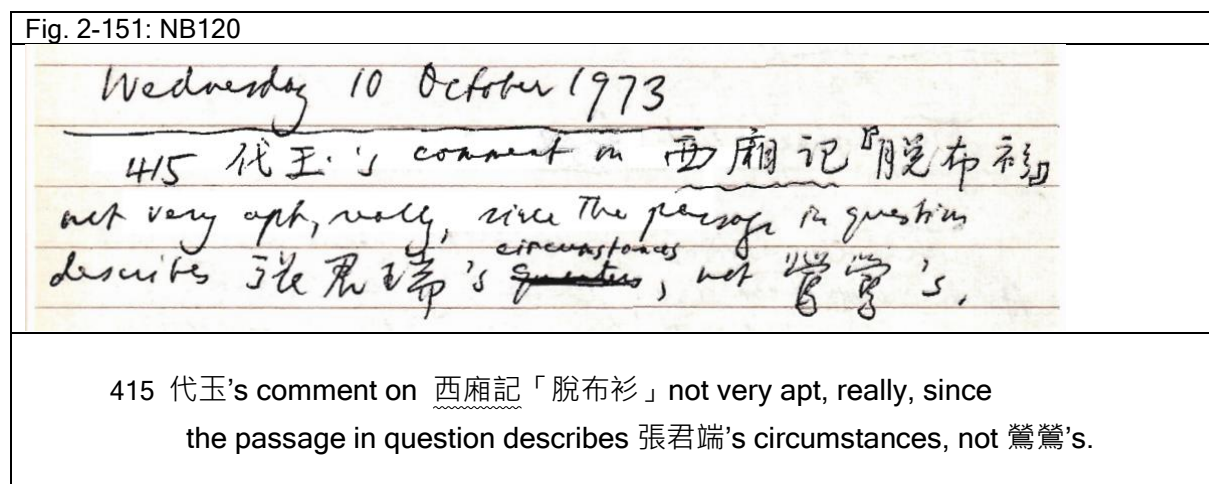 Fig. 2-151: NB120
Wednesday 10 October 1973
415 代玉's comment on 西廂记『脱布衫』
not very apt, really, since the passage in question
circumstances
describes 张君瑞's , not 鶯鶯's.
415 代玉's comment on 西廂記「脫布衫」not very apt, really, since
the passage in question describes 張君端's circumstances, not 鶯鶯's.